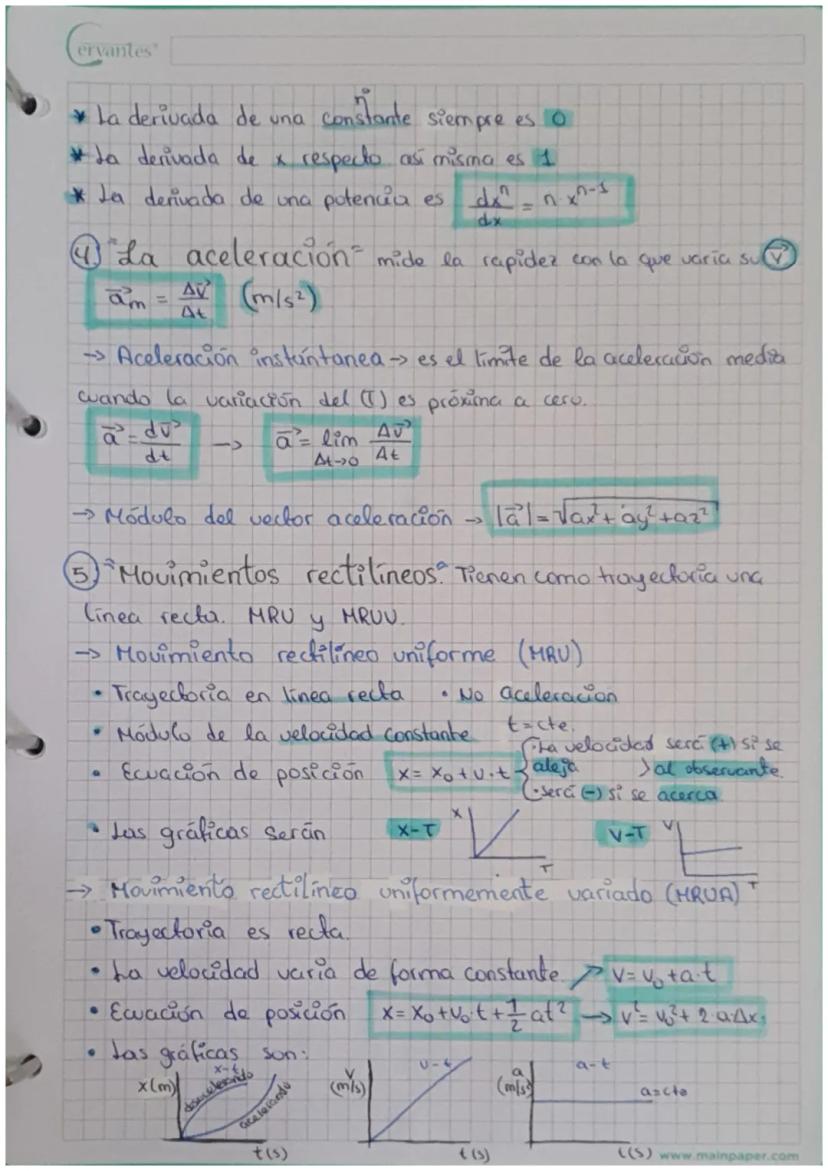 Cervantes
n
* La derivada de una constante siempre es 0
* La derivada de x respecto así misma es 1
* La derivada de una potencia es dxⁿ/dx = n · xⁿ⁻¹
④ "La aceleración" mide la rapidez con la que varía su v⃗
a⃗m = Δv⃗/Δt (m/s²)
→ Aceleración instantánea → es el límite de la aceleración media
cuando la variación del (T) es próxima a cero.
a⃗ = dv⃗/dt → a⃗ = lim Δt→0 Δv⃗/Δt
→ Módulo del vector aceleración → |a⃗| = √ax² + ay² + az²
⑤ "Movimientos rectilíneos". Tienen como trayectoria una
línea recta. MRU y MRUV.
→ Movimiento rectilíneo uniforme (MRU)
• Trayectoria en línea recta • No aceleración
• Módulo de la velocidad constante t=cte.
• Ecuación de posición x = x₀ + v · t { · La velocidad será (+) si se
aleja } al observante.
· será (-) si se acerca
• Las gráficas serán X-T X T V-T V T
→ Movimiento rectilíneo uniformemente variado (MRUA)
• Trayectoria es recta.
• La velocidad varía de forma constante. ↗ v = v₀ + a · t
• Ecuación de posición x = x₀ + v₀ · t + 1/2 at² → v² = v₀² + 2 · a · Δx
• Las gráficas son:
x(m) x-t desacelerando acelerando t(s)
v (m/s) v-t t(s)
a (m/s²) a-t a=cte t(s)
www.mainpaper.com